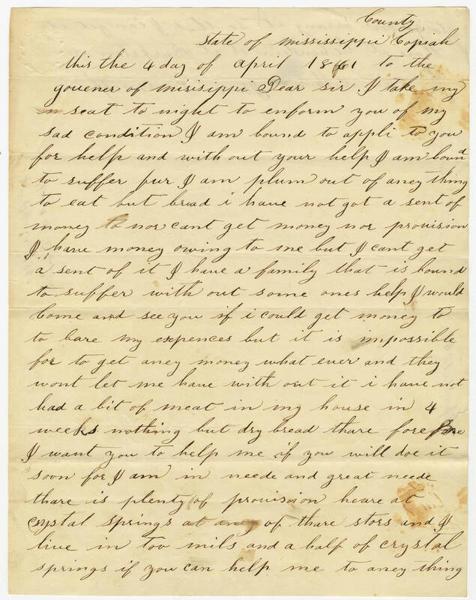 County
State of mississippi Copiah
this the 4 day of april 1861 to the
govener of misisippi Dear sir I take my
seat to night to enform you of my
sad condition I am bound to appli to you
for help and with out your help I am bound
to suffer fur I am plum out of aney thing
to eat but bread i have not got a sent of
money to nor cant get money nor provision
I have money owing to me but I cant get
a sent of it I have a family that is bound
to suffer with out some ones help I would
come and see you if i could get money to
to bare my expences but it is impossible
for to get aney money what ever and they
wont let me have with out it i have not
had a bit of meat in my house in 4
weeks nothing but dry bread thare fore
I want you to help me if you will doe it
soon for I am in neede and great neede
thare is plenty of provision heare at
crystal springs at aney of thare stors and I
live in too mils and a half of crystal
springs if you can help me to aney thing